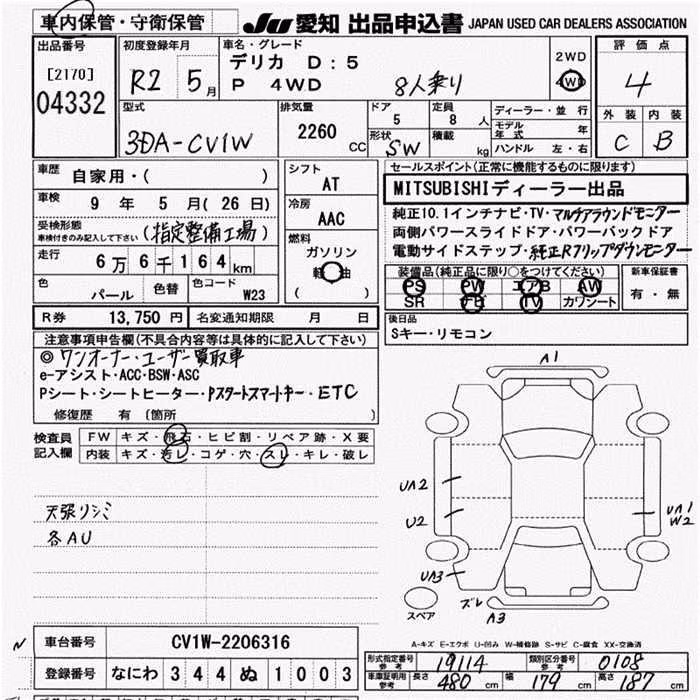 車内保管・守衛保管
JU 愛知 出品申込書 JAPAN USED CAR DEALERS ASSOCIATION
出品番号
[2170]
04332
初度登録年月
R2 5月
車名・グレード
デリカ D:5
P 4WD 8人乗り
2WD
4WD
評価点
4
外装 内装
C B
型式
3DA-CV1W
排気量
2260 CC
ドア
5
形状
SW
定員
8 人
積載
kg
ディーラー・並行
モデル年式 年
ハンドル 左・右
車歴
自家用・( )
車検
9 年 5 月(26 日)
受検形態
車検付きのみ記入して下さい
(指定整備工場)
走行
6万6千164km
色
パール
色替
色コード
W23
シフト
AT
冷房
AAC
燃料
ガソリン
軽油
( )
R券 13,750 円 名変通知期限 月 日
セールスポイント(正常に機能するものに限り)
MITSUBISHIディーラー出品
純正10.1インチナビ・TV・マルチアラウンドモニター
両側パワースライドドア・パワーバックドア
電動サイドステップ・純正Rフリップダウンモニター
装備品(純正品に限り○をつけてください)
PS PW エアB AW
SR ナビ TV カワシート
新車保証書
有・無
後日品
Sキー・リモコン
注意事項申告欄(不具合内容等は具体的に記入して下さい)
◎ワンオーナー・ユーザー買取車
e-アシスト・ACC・BSW・ASC
Pシート・シートヒーター・Pスタートスマートキー・ETC
修復歴 有 (箇所 )
検査員記入欄
FW キズ・飛石・ヒビ割・リペア跡・X要
内装 キズ・汚レ・コゲ・穴・スレ・キレ・破レ
天張りシミ
各AU
A1
UA2
U2
UA3
UA1
W2
ズレ
A3
スペア
A-キズ E-エクボ U-凹み W-補修跡 S-サビ C-腐食 XX-交換済
N
車台番号 CV1W-2206316
登録番号 なにわ 344 ぬ 1003
形式指定番号
参考
19114
類別区分番号
参考
0108
車庫証明用
参考
長さ 480 cm 幅 179 cm 高さ 187 cm